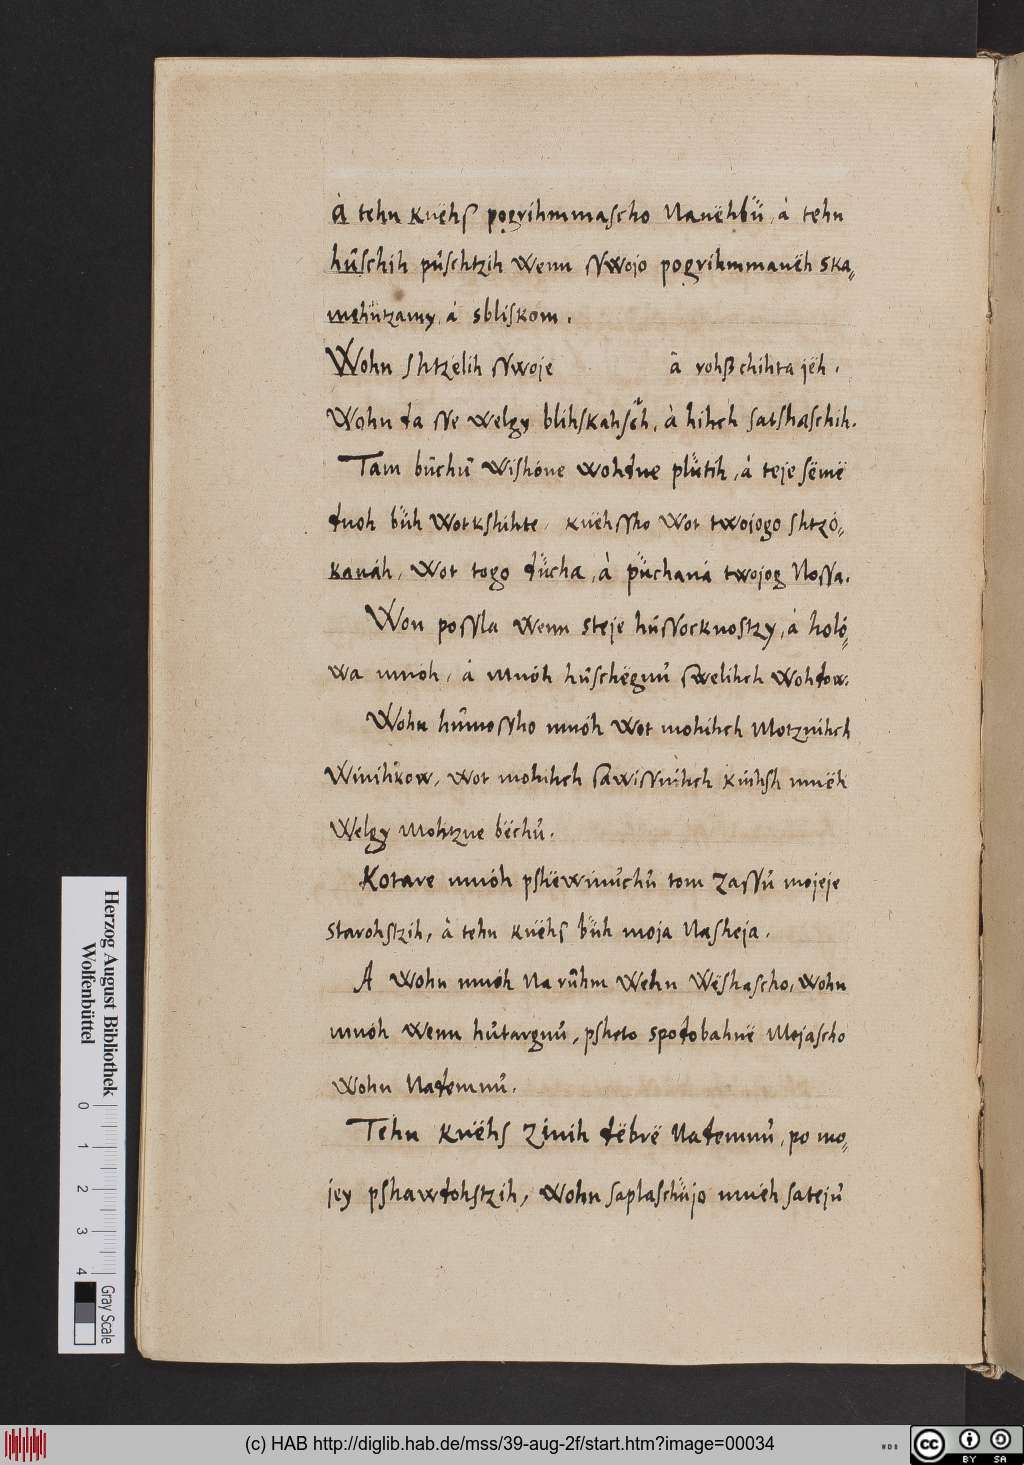 À tehn knëhſ pogrihmmaſcho Nanëhbü, à tehn
hůſchih půſchtzih Wenn ſſwojo pogrihmmanëh ska⸗
mehützamy, á sbliſkom.
Wohn ſhtzelih ſſwoje â rohßchihta jëh.
Wohn da ſſe welgy blihskahſëh, à hihch satshaschih.
Tam bůchů Wiſhóne wohdne plütih, á teje ſëmë
dnoh büh Wotkshihte, knëhſſho Wot twojogo shtzó⸗
kanáh, Wot togo dücha, à püchaná twojog Noſſa.
Won poſſla Wenn steje húſſocknoſtzy, á holó⸗
wa mnóh, á Mnóh hůſchëgnů ſwelihch Wohdow.
Wohn hůmoſſho mnóh Wot mohihch Motznihch
Winihkow, Wot mohihch ſawiſſnihch knihſh mnëh
Welgy Mohtzne bëchů.
Kotare mnóh pſhëwinůchů tom zaſſů mojeje
starohſtzih, â tehn knëhſ büh moja Naſheja.
A Wohn mnóh Na růhm Wehn Wëſhaſcho, Wohn
mnóh Wenn hůtargnů, pſheto spodobahnë Mejaſcho
Wohn Nademnů.
Tehn knëhſ zinih dëbrë Nademnů, po mo⸗
jey pſhawdohſtzih, Wohn saplaſchüjo mnëh satejů
Herzog August Bibliothek
Wolfenbüttel
0 1 2 3 4
Gray Scale
(c) HAB http://diglib.hab.de/mss/39-aug-2f/start.htm?image=00034
WDB
cc BY SA